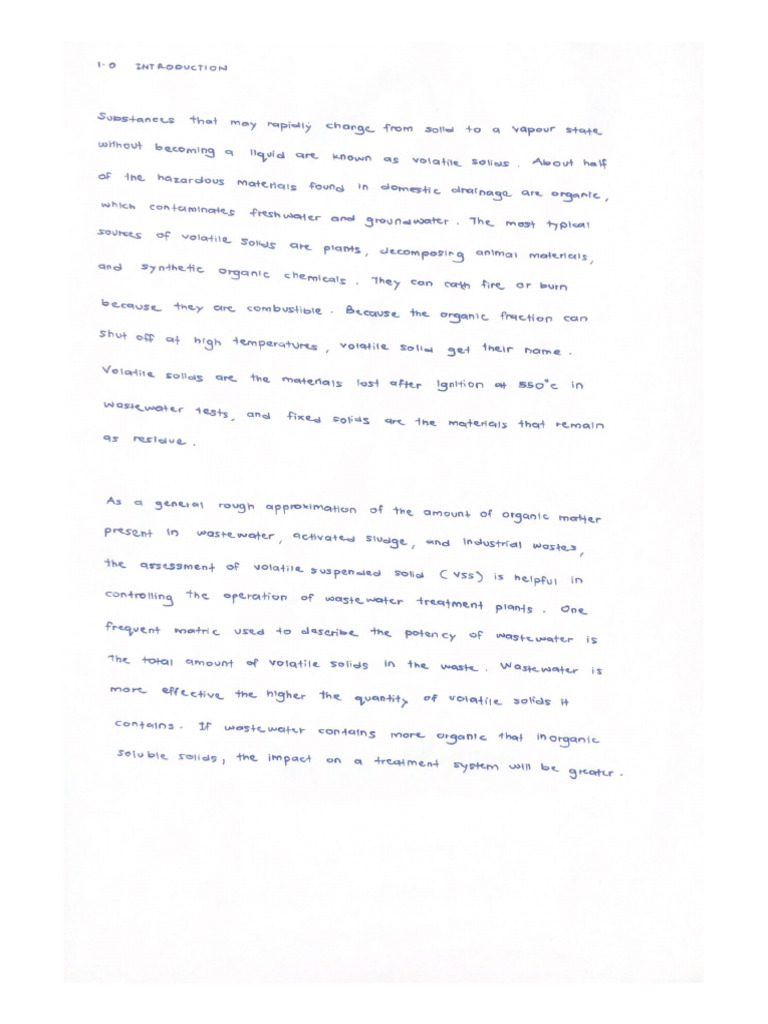 1.0 INTRODUCTION
Substances that may rapidly change from solid to a vapour state
without becoming a liquid are known as volatile solids. About half
of the hazardous materials found in domestic drainage are organic,
which contaminates freshwater and groundwater. The most typical
sources of volatile solids are plants, decomposing animal materials,
and synthetic organic chemicals. They can cath fire or burn
because they are combustible. Because the organic fraction can
shut off at high temperatures, volatile solid get their name.
Volatile solids are the materials lost after ignition at 550°c in
wastewater tests, and fixed solids are the materials that remain
as residue.
As a general rough approximation of the amount of organic matter
present in wastewater, activated sludge, and industrial wastes,
the assessment of volatile suspended solid (VSS) is helpful in
controlling the operation of wastewater treatment plants. One
frequent matric used to describe the potency of wastewater is
the total amount of volatile solids in the waste. Wastewater is
more effective the higher the quantity of volatile solids it
contains. If wastewater contains more organic that inorganic
soluble solids, the impact on a treatment system will be greater.